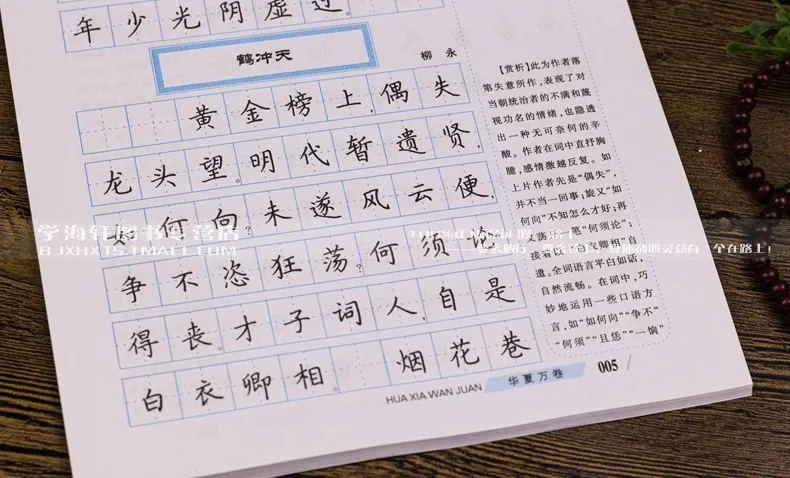 年少光阴虚过
鹤冲天
柳永
黄金榜上,偶失
龙头望。明代暂遗贤,
如何向?未遂风云便,
争不恣狂荡?何须论
得丧。才子词人,自是
白衣卿相。 烟花巷
【赏析】此为作者落
第失意所作,表现了对
当朝统治者的不满和蔑
视功名的情绪,也隐透
出一种无可奈何的辛
酸。作者在词中直抒胸
臆,感情激越反复。如
上片作者先是“偶失”,
并不当一回事;旋又“如
何向”不知怎么才好;再
又荡开一笔“何须论”;
接着以
遣。全词语言平白如话,
自然流畅。在词中,巧
妙地运用一些口语方
言,如“如何向”“争不”
“何须”“且恁”“一饷”
HUA XIA WAN JUAN
华夏万卷
005
学海轩图书专营店
BJXHXTS.TMALL.COM